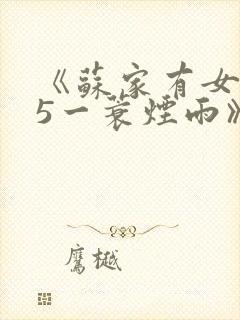 《蘇家有女
5一蓑煙雨》
鷹樾